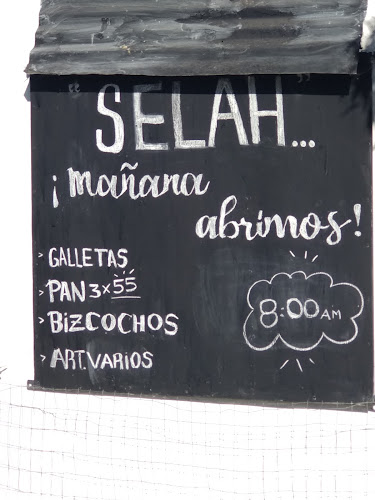 "SELAH"...
¡Mañana
abrimos!
> GALLETAS
> PAN 3x55
> BizCOCHOS
> ART.VARIOS
8:00 AM